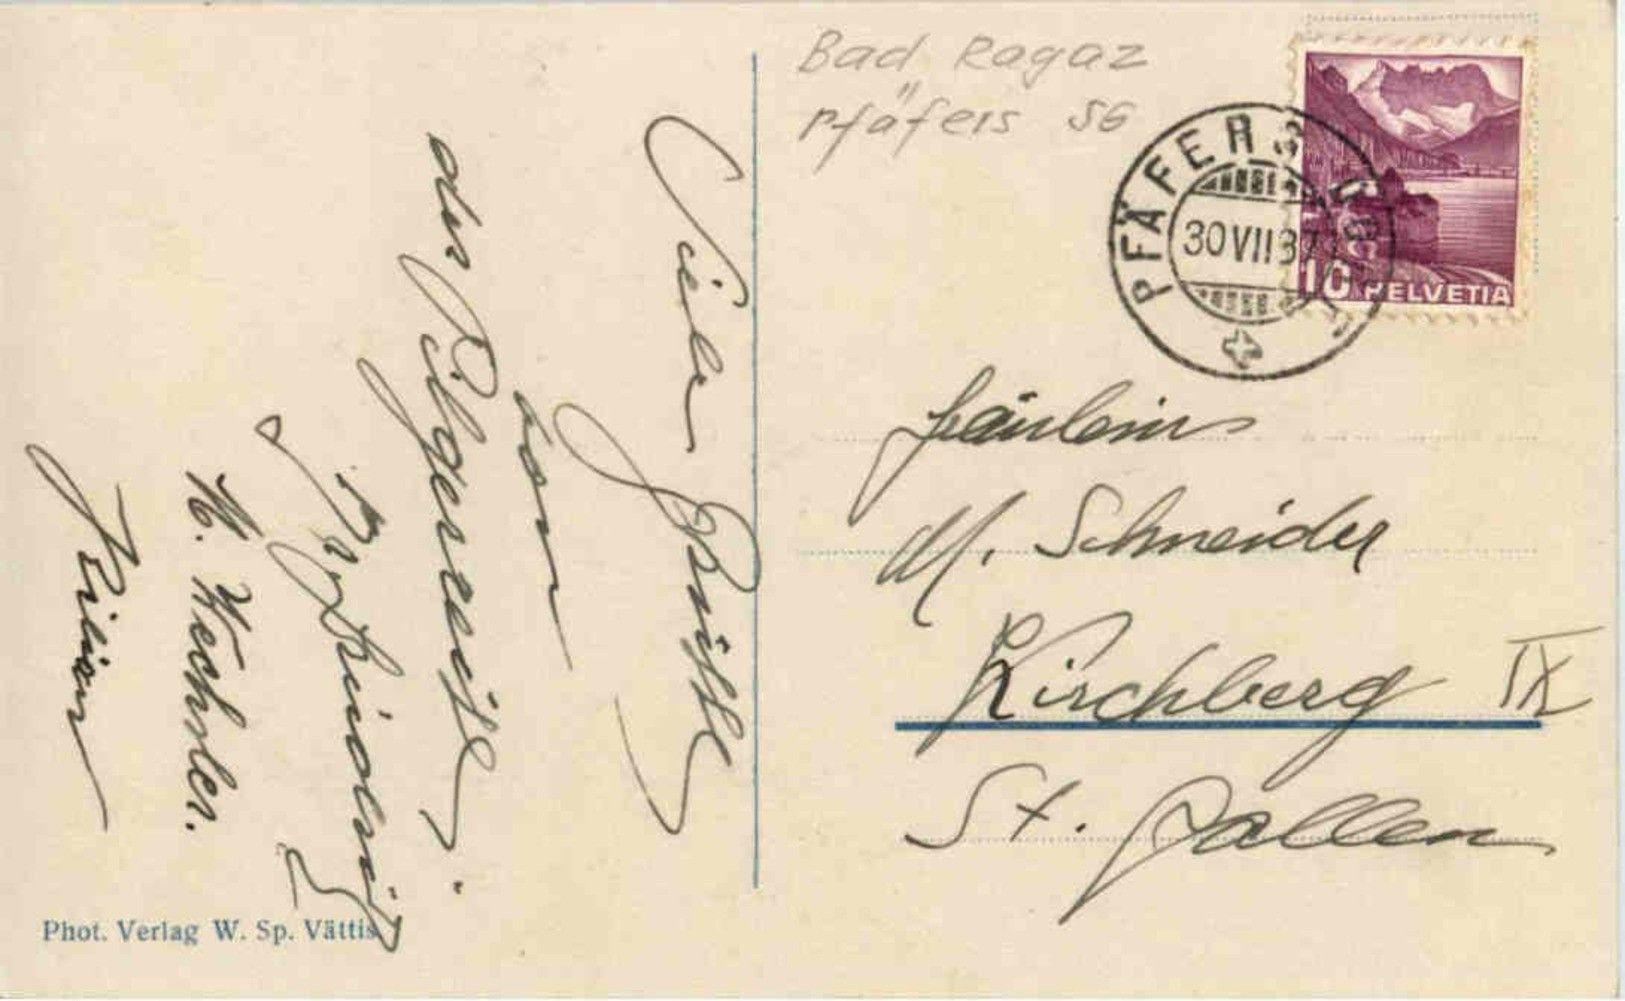 Bad Ragaz
Pfäfers SG
PFÄFERS
30 VII 37
10 HELVETIA
Fräulein
M. Schneider
Kirchberg IX
St. Gallen
Viele Grüsse
von
der
H. Wechsler.
Kilian
Phot. Verlag W. Sp. Vättis